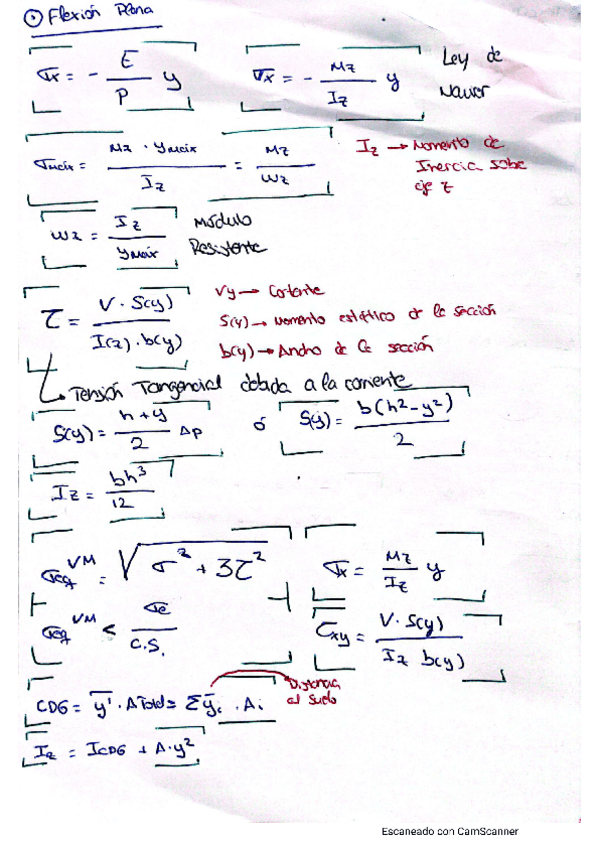 ① Flexión Plana
σx = - E/ρ y    σx = - Mz/Iz y    Ley de Navier
σmáx = Mz · ymáx / Iz = Mz/Wz    Iz → Momento de Inercia sobe eje z
Wz = Iz/ymáx    Módulo Resistente
τ = V · S(y) / I(z) · b(y)    Vy → Cortante
S(y) → Momento estático de la sección
b(y) → Ancho de la sección
→ Tensión Tangencial debida a la
S(y) = h+y/2 Ap    ó    S(y) = b(h²-y²)/2
Iz = bh³/12
σeq^VM = √σ² + 3τ²    σx = Mz/Iz y
σeq^VM < σe/C.S.    τxy = V · S(y) / Iz b(y)
CDG = y̅' · ATotal = Σy̅i · Ai    Distancia al suelo
Iz = ICDG + A·y²
Escaneado con CamScanner